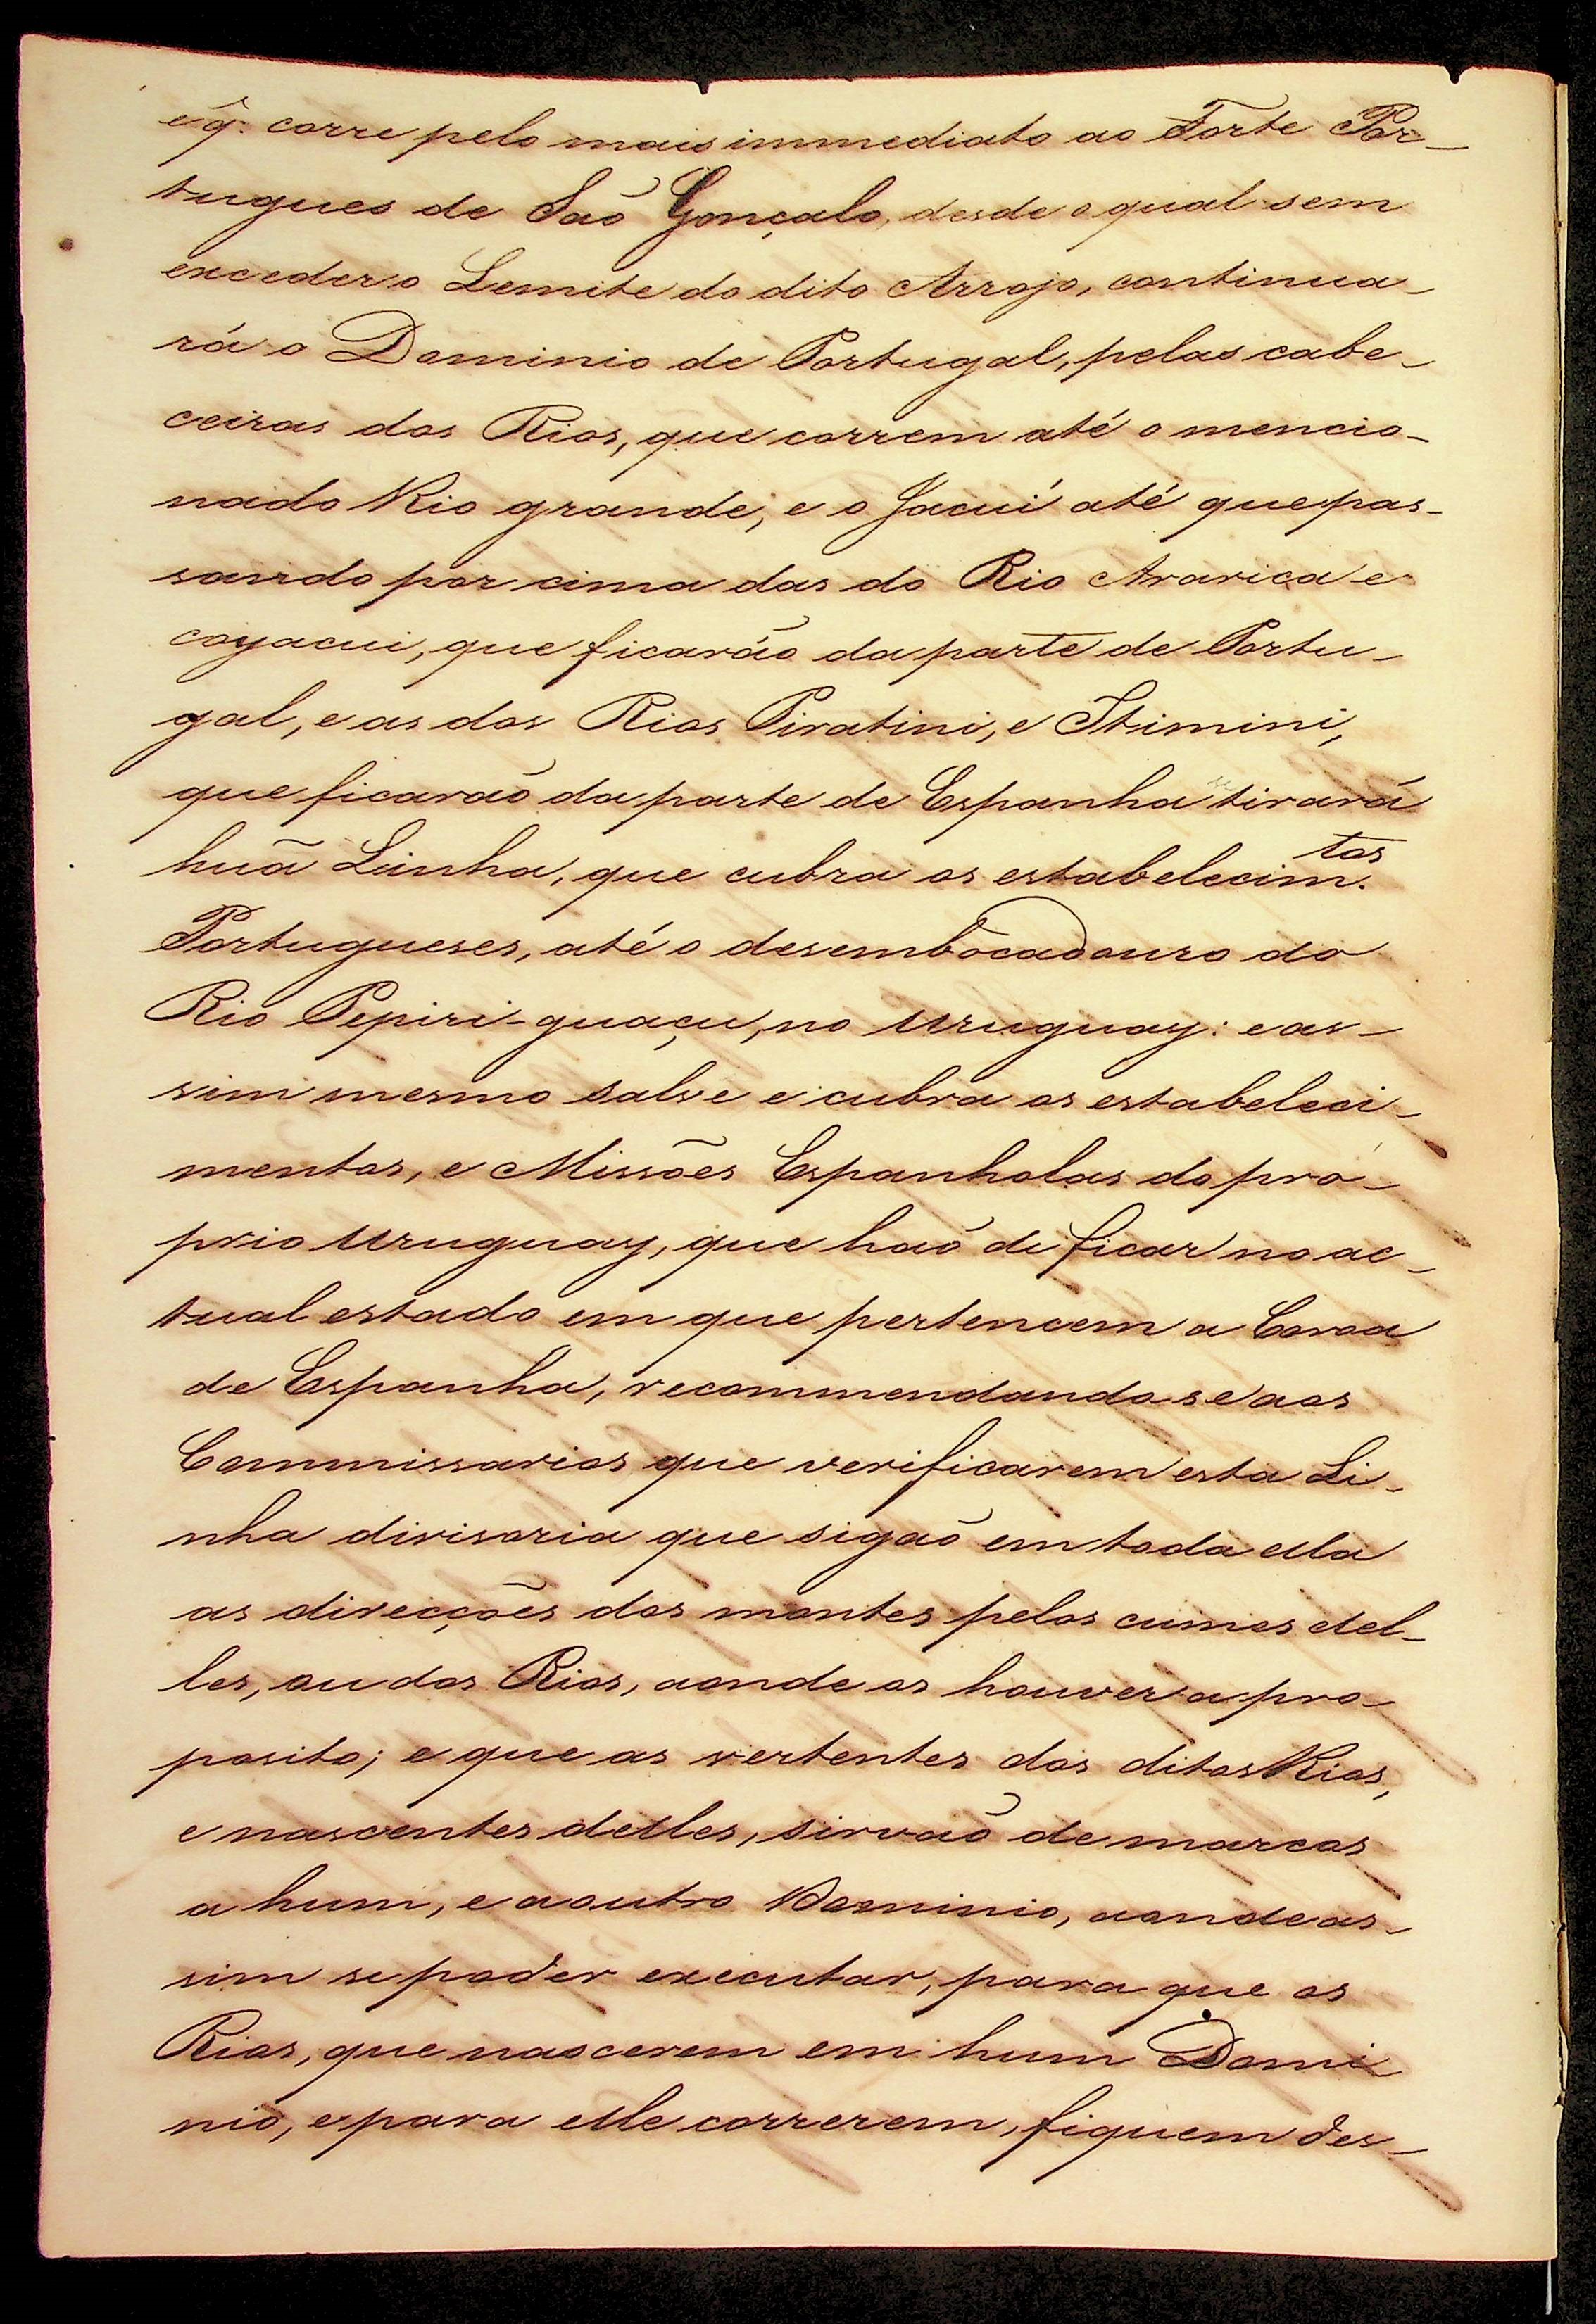 e q̃. corre pelo mais immediato ao Forte Por-
tugues de Saõ Gonçalo, desde o qual sem
exceder o Lemite do dito Arrojo, continua-
rá o Dominio de Portugal, pelas cabe-
ceiras dos Rios, que correm até o mencio-
nado Rio grande, e o Jacuí até que pas-
sando por cima das do Rio Ararica e
coyacui, que ficaráõ da parte de Portu-
gal, e as dos Rios Piratini, e Ibimini,
que ficaraõ da parte de Espanha se tirará
huã Linha, que cubra os estabelecim.tos
Portugueses, até o desembocadouro do
Rio Pepiri-guaçu, no Uruguay: e as-
sim mesmo salve e cubra os estabeleci-
mentos, e Missões Espanholas do pro-
prio Uruguay, que haõ de ficar no ac-
tual estado em que pertencem a Coroa
de Espanha, recommendando-se aos
Commissarios que verificarem esta Li-
nha divisoria que sigaõ em toda ella
as direcções dos montes pelos cumes del-
les, ou dos Rios, aonde os houver a pro-
posito; e que as vertentes dos ditos Rios,
e nascentes delles, sirvaõ de marcos
a hum, e a outro Dominio, aonde as-
sim se poder executar, para que os
Rios, que nascerem em hum Domi
nio, e para elle correrem, fiquem des-